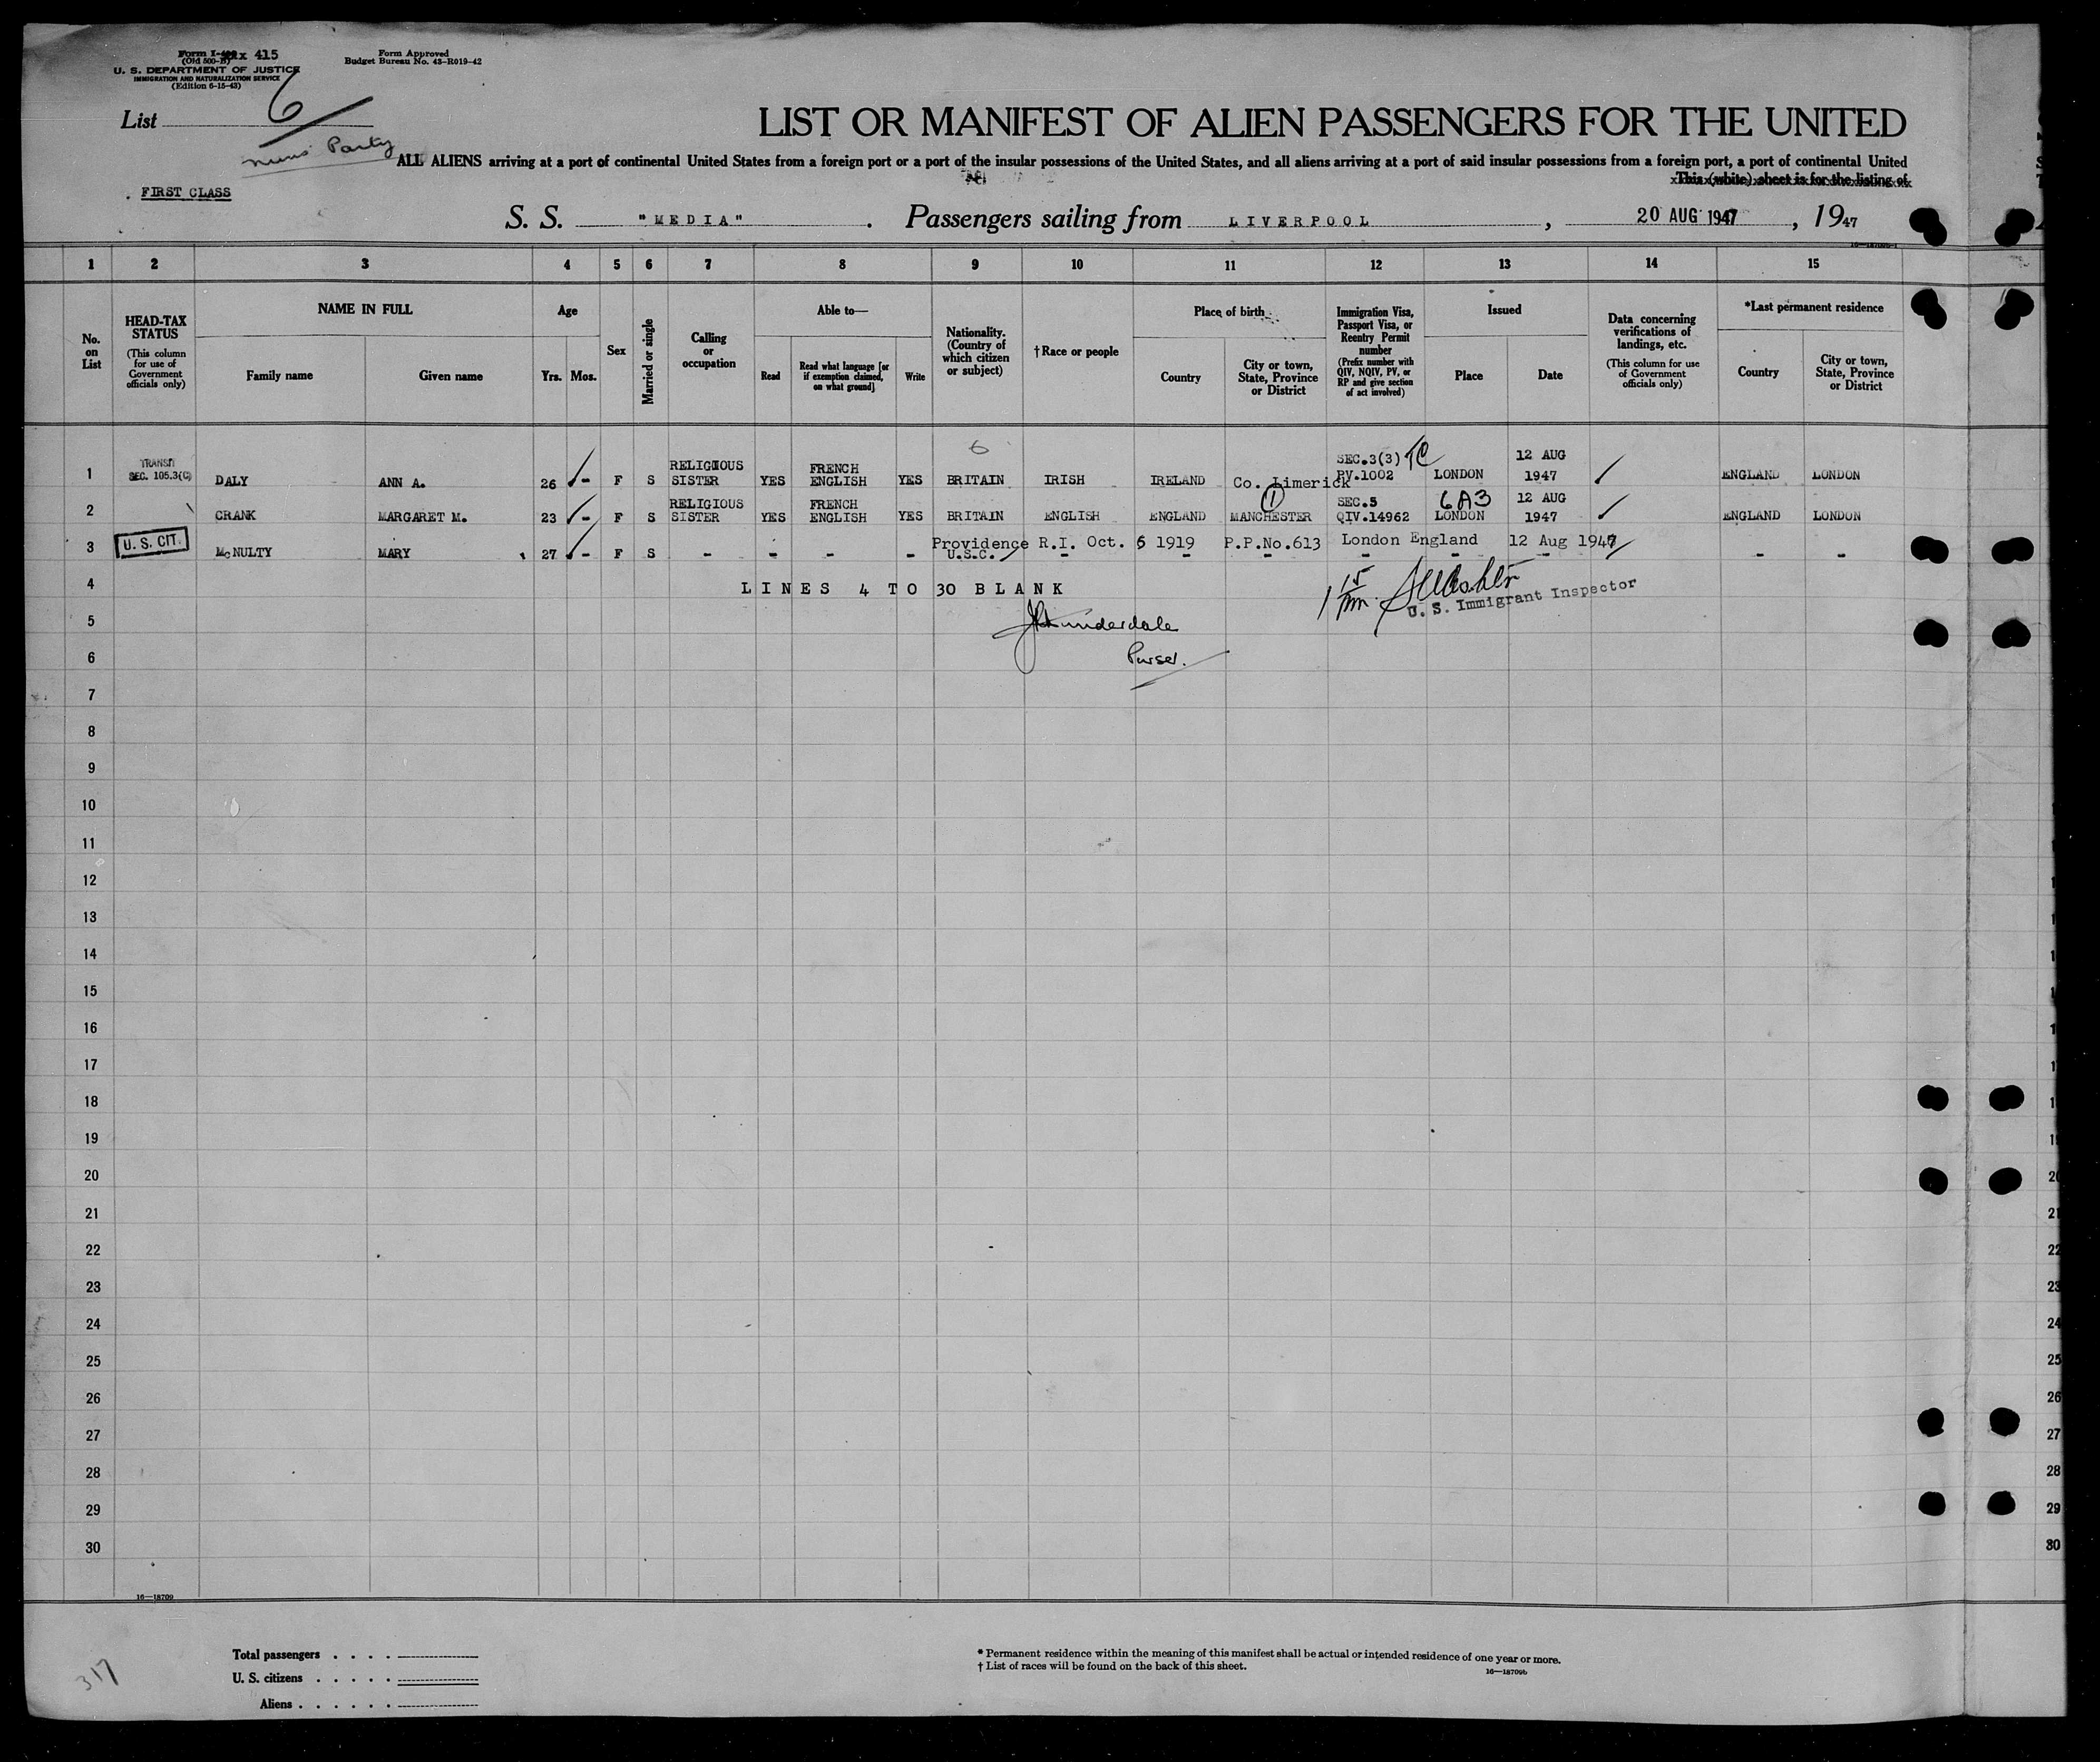 Form I-415
(Old 500-B)
U. S. DEPARTMENT OF JUSTICE
IMMIGRATION AND NATURALIZATION SERVICE
(Edition 6-15-43)
Form Approved
Budget Bureau No. 43-R019-42
List 6
Nuns' Party
FIRST CLASS
LIST OR MANIFEST OF ALIEN PASSENGERS FOR THE UNITED
ALL ALIENS arriving at a port of continental United States from a foreign port or a port of the insular possessions of the United States, and all aliens arriving at a port of said insular possessions from a foreign port, a port of continental United
This (white) sheet is for the listing of
S. S. "MEDIA". Passengers sailing from LIVERPOOL, 20 AUG 1947, 1947
1 2 3 4 5 6 7 8 9 10 11 12 13 14 15
No. on List
HEAD-TAX STATUS
(This column for use of Government officials only)
NAME IN FULL
Family name Given name
Age
Yrs. Mos.
Sex
Married or single
Calling or occupation
Able to—
Read
Read what language [or if exemption claimed, on what ground]
Write
Nationality. (Country of which citizen or subject)
†Race or people
Place of birth
Country
City or town, State, Province or District
Immigration Visa, Passport Visa, or Reentry Permit number
(Prefix number with QIV, NQIV, PV, or RP and give section of act involved)
Issued
Place Date
Data concerning verifications of landings, etc.
(This column for use of Government officials only)
*Last permanent residence
Country
City or town, State, Province or District
6
1 TRANSIT SEC. 105.3(C) DALY ANN A. 26 ✓ - F S RELIGIOUS SISTER YES FRENCH ENGLISH YES BRITAIN IRISH IRELAND Co. Limerick SEC.3(3) PV.1002 LONDON 12 AUG 1947 ✓ ENGLAND LONDON
2 CRANK MARGARET M. 23 ✓ - F S RELIGIOUS SISTER YES FRENCH ENGLISH YES BRITAIN ENGLISH ENGLAND 1 MANCHESTER SEC.5 QIV.14962 6A3 LONDON 12 AUG 1947 ✓ ENGLAND LONDON
3 U. S. CIT. McNULTY MARY 27 ✓ - F S - - - - Providence R.I. Oct. 6 1919 P.P.No.613 London England 12 Aug 1947
U.S.C. - - - - - - - -
4 LINES 4 TO 30 BLANK
U. S. Immigrant Inspector
5
6 Purser.
7
8
9
10
11
12
13
14
15
16
17
18
19
20
21
22
23
24
25
26
27
28
29
30
20
21
22
23
24
25
26
27
28
29
30
16—18709
317
Total passengers . . . .
U. S. citizens . . . . .
Aliens . . . . . .
* Permanent residence within the meaning of this manifest shall be actual or intended residence of one year or more.
† List of races will be found on the back of this sheet.
16—18709b